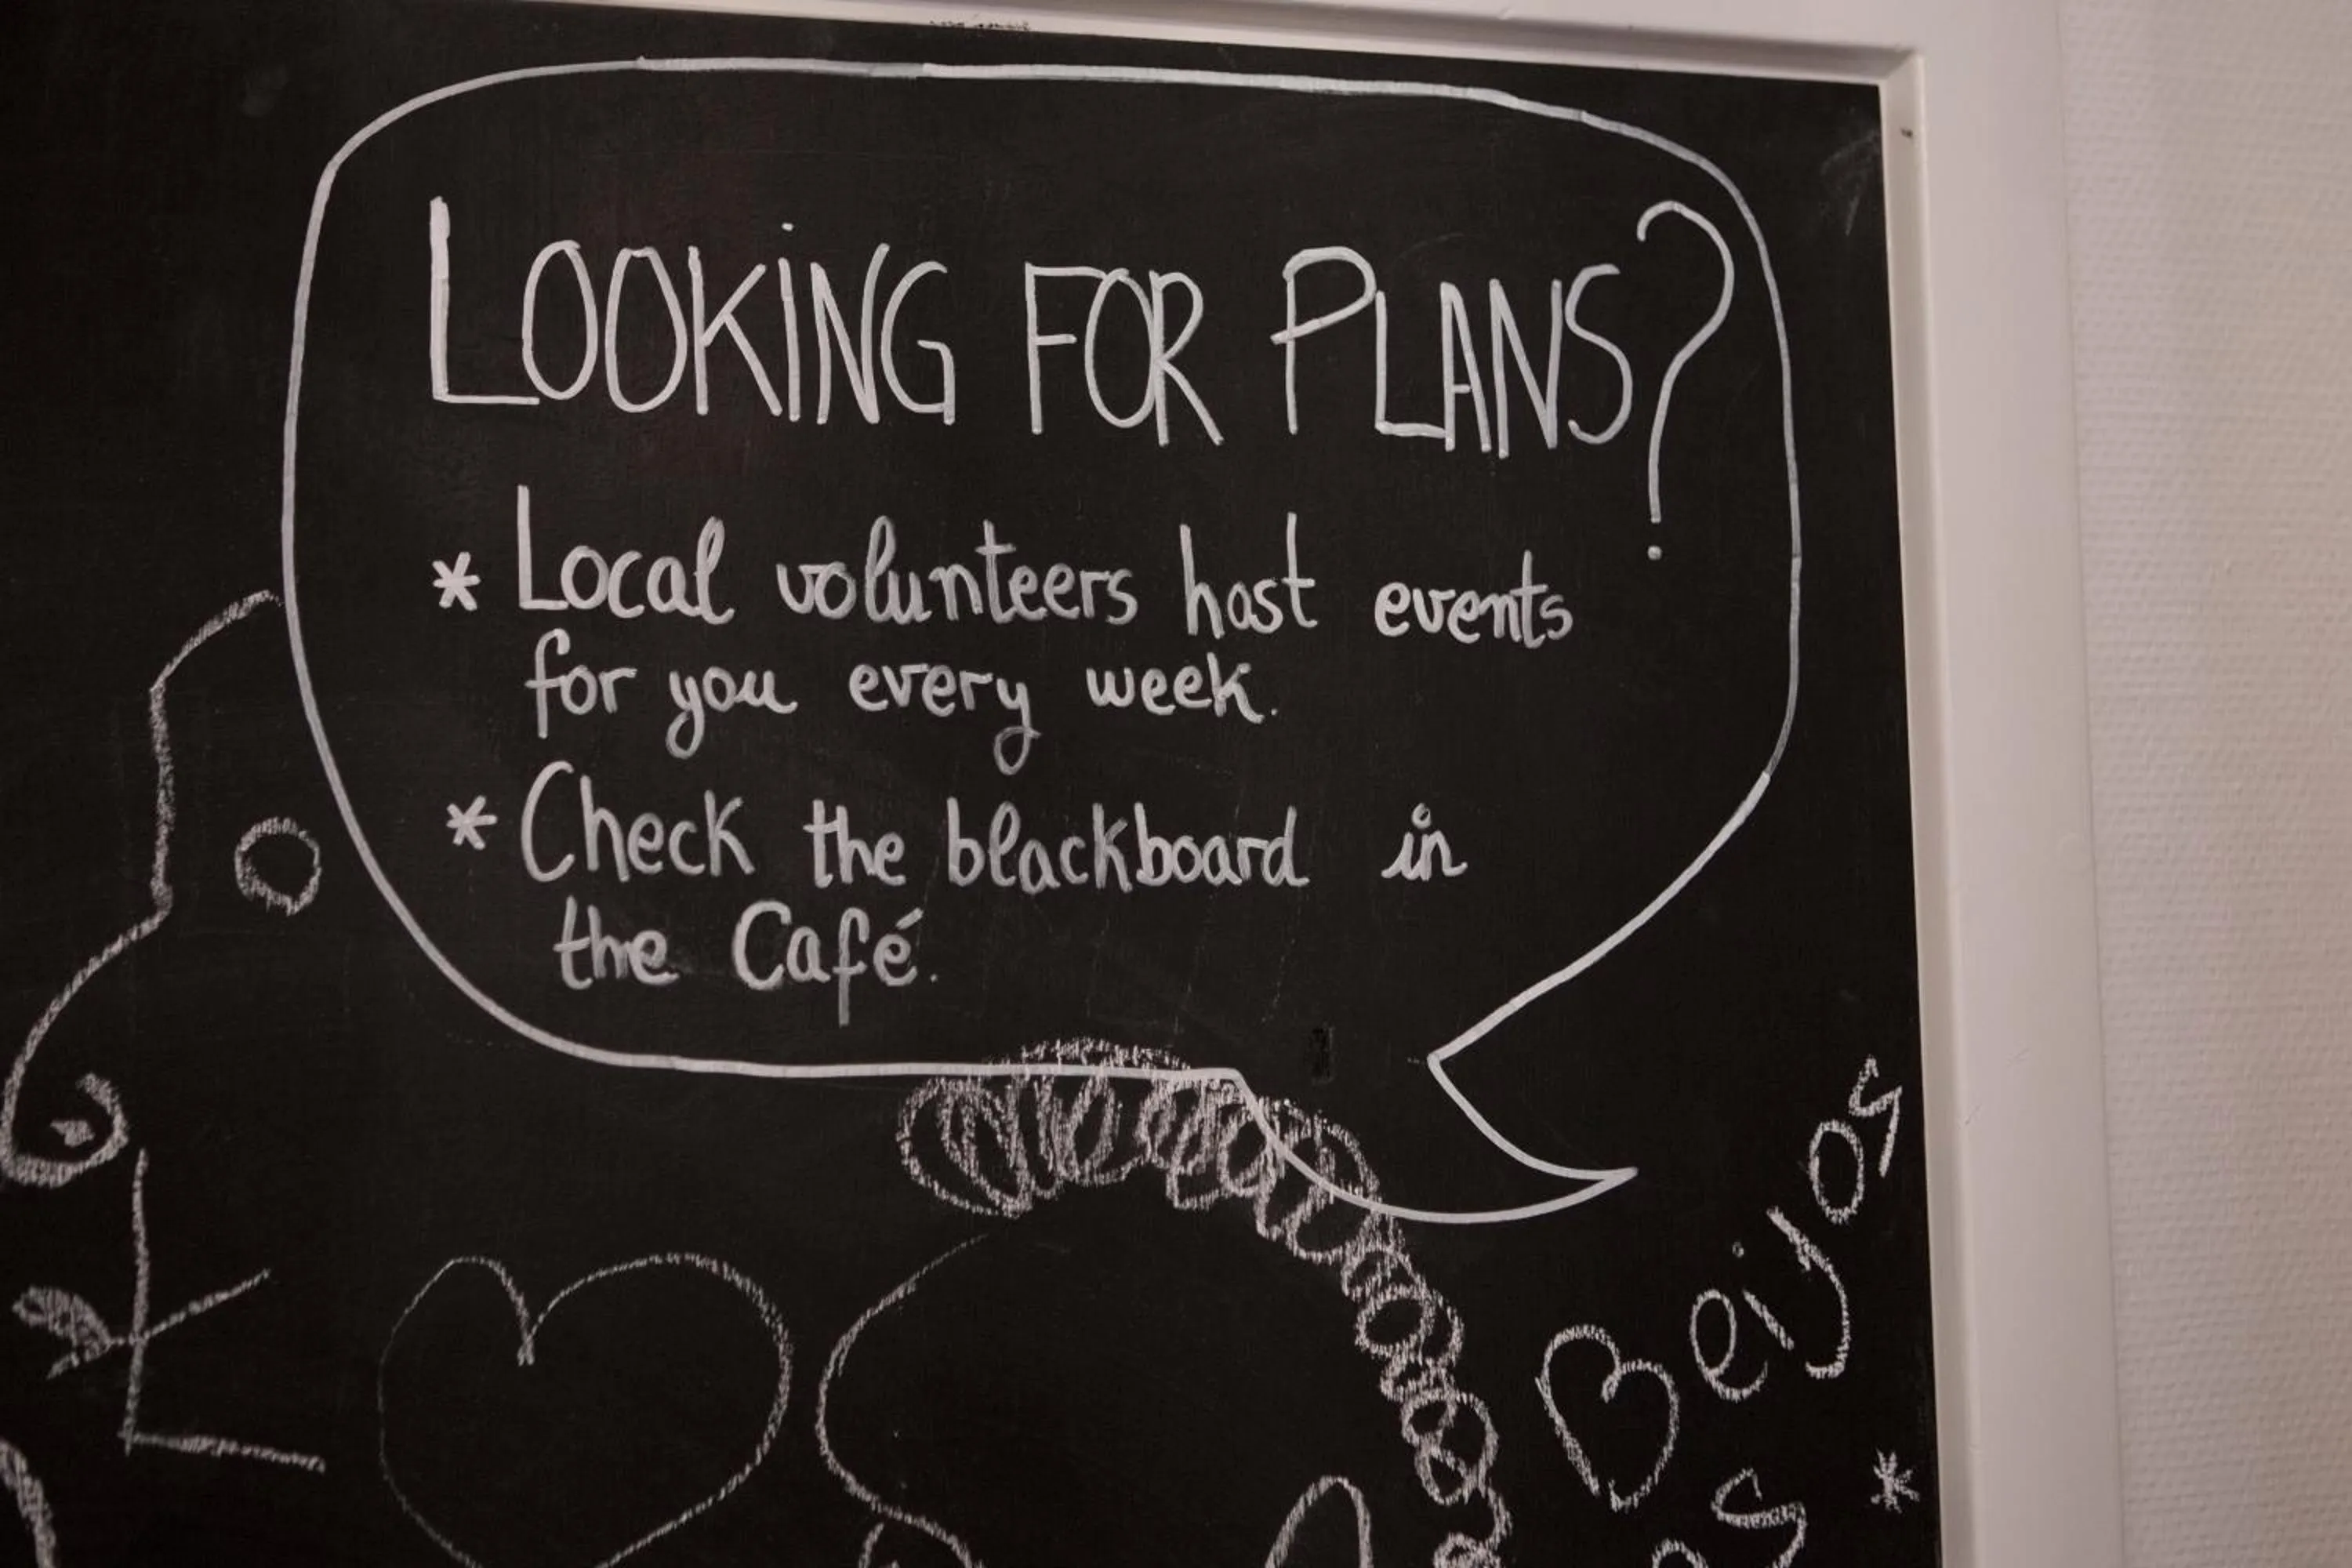 LOOKING FOR PLANS?
* Local volunteers host events
for you every week.
* Check the blackboard in
the Café.
Beijos